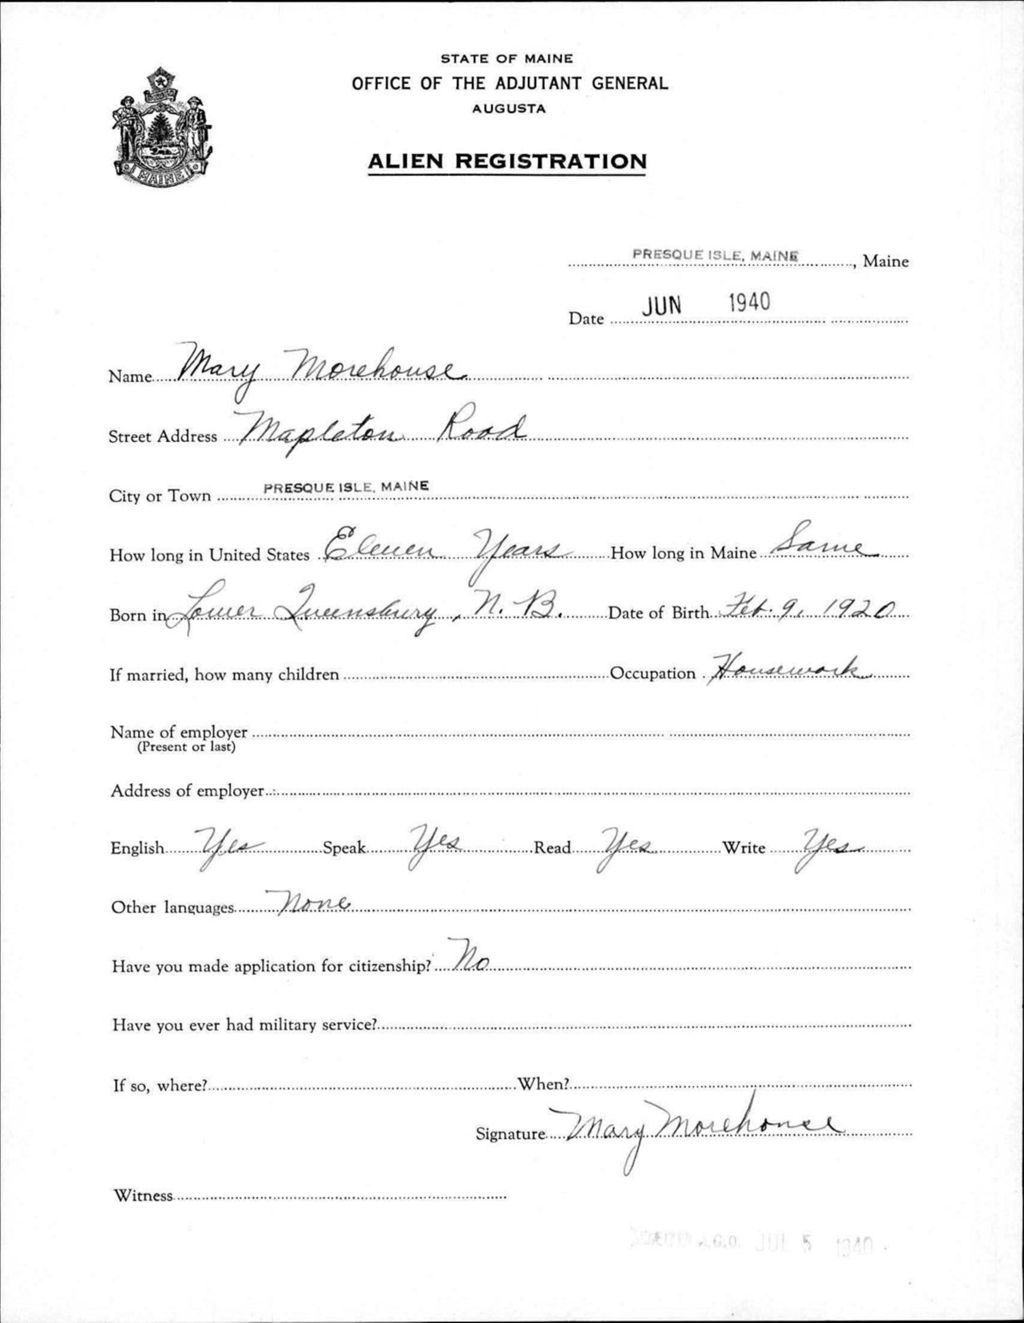 STATE OF MAINE
OFFICE OF THE ADJUTANT GENERAL
AUGUSTA
ALIEN REGISTRATION
MAINE
PRESQUE ISLE, MAINE, Maine
Date JUN 1940
Name Mary Morehouse
Street Address Mapleton Road
City or Town PRESQUE ISLE, MAINE
How long in United States Eleven Years How long in Maine Same
Born in Lower Queensbury, N. B. Date of Birth Feb. 9, 1920
If married, how many children Occupation Housework
Name of employer
(Present or last)
Address of employer
English Yes Speak Yes Read Yes Write Yes
Other languages None
Have you made application for citizenship? No
Have you ever had military service?
If so, where? When?
Signature Mary Morehouse
Witness
A.G.O. JUL 5 1940